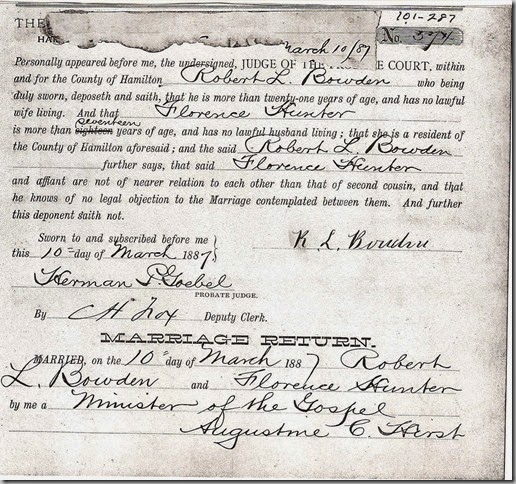 101-287
THE
HA
March 10/87
No. 374
Personally appeared before me, the undersigned, JUDGE OF THE PRO TE COURT, within
and for the County of Hamilton Robert L. Bowden who being
duly sworn, deposeth and saith, that he is more than twenty-one years of age, and has no lawful
wife living. And that Florence Hunter
seventeen
is more than eighteen years of age, and has no lawful husband living; that she is a resident of
the County of Hamilton aforesaid; and the said Robert L Bowden
further says, that said Florence Hunter
and affiant are not of nearer relation to each other than that of second cousin, and that
he knows of no legal objection to the Marriage contemplated between them. And further
this deponent saith not.
Sworn to and subscribed before me
R. L. Bowden
this 10th day of March 1887.
Herman P. Goebel
PROBATE JUDGE.
By Deputy Clerk.
MARRIAGE RETURN.
MARRIED, on the 10th day of March 1887 Robert
L. Bowden and Florence Hunter
by me a Minister of the Gospel
Augustine C. Hirst